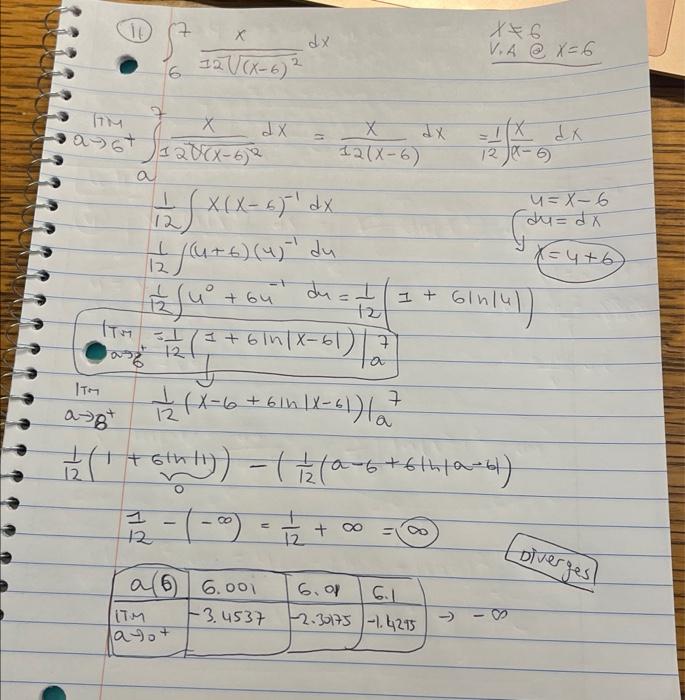 11 ∫₆⁷ x / 12√(x-6)² dx
x ≠ 6
V.A @ x=6
lim a→6⁺ ∫ₐ⁷ x / 12√(x-6)² dx = x / 12(x-6) dx = 1/12 ∫ x / (x-6) dx
1/12 ∫ x(x-6)⁻¹ dx
u = x-6
du = dx
x = u+6
1/12 ∫ (u+6)(u)⁻¹ du
1/12 ∫ u⁰ + 6u⁻¹ du = 1/12 (1 + 6ln|u|)
lim a→6⁺ = 1/12 (1 + 6ln|x-6|) |ₐ⁷
lim a→8⁺ 1/12 (x-6 + 6ln|x-6|) |ₐ⁷
1/12 (1 + 6ln|1|) - (1/12 (a-6 + 6ln|a-6|)
0
1/12 - (-∞) = 1/12 + ∞ = ∞
Diverges
a(6) 6.001 6.01 6.1
lim a→0⁺ -3.4537 -2.30175 -1.4295 → -∞